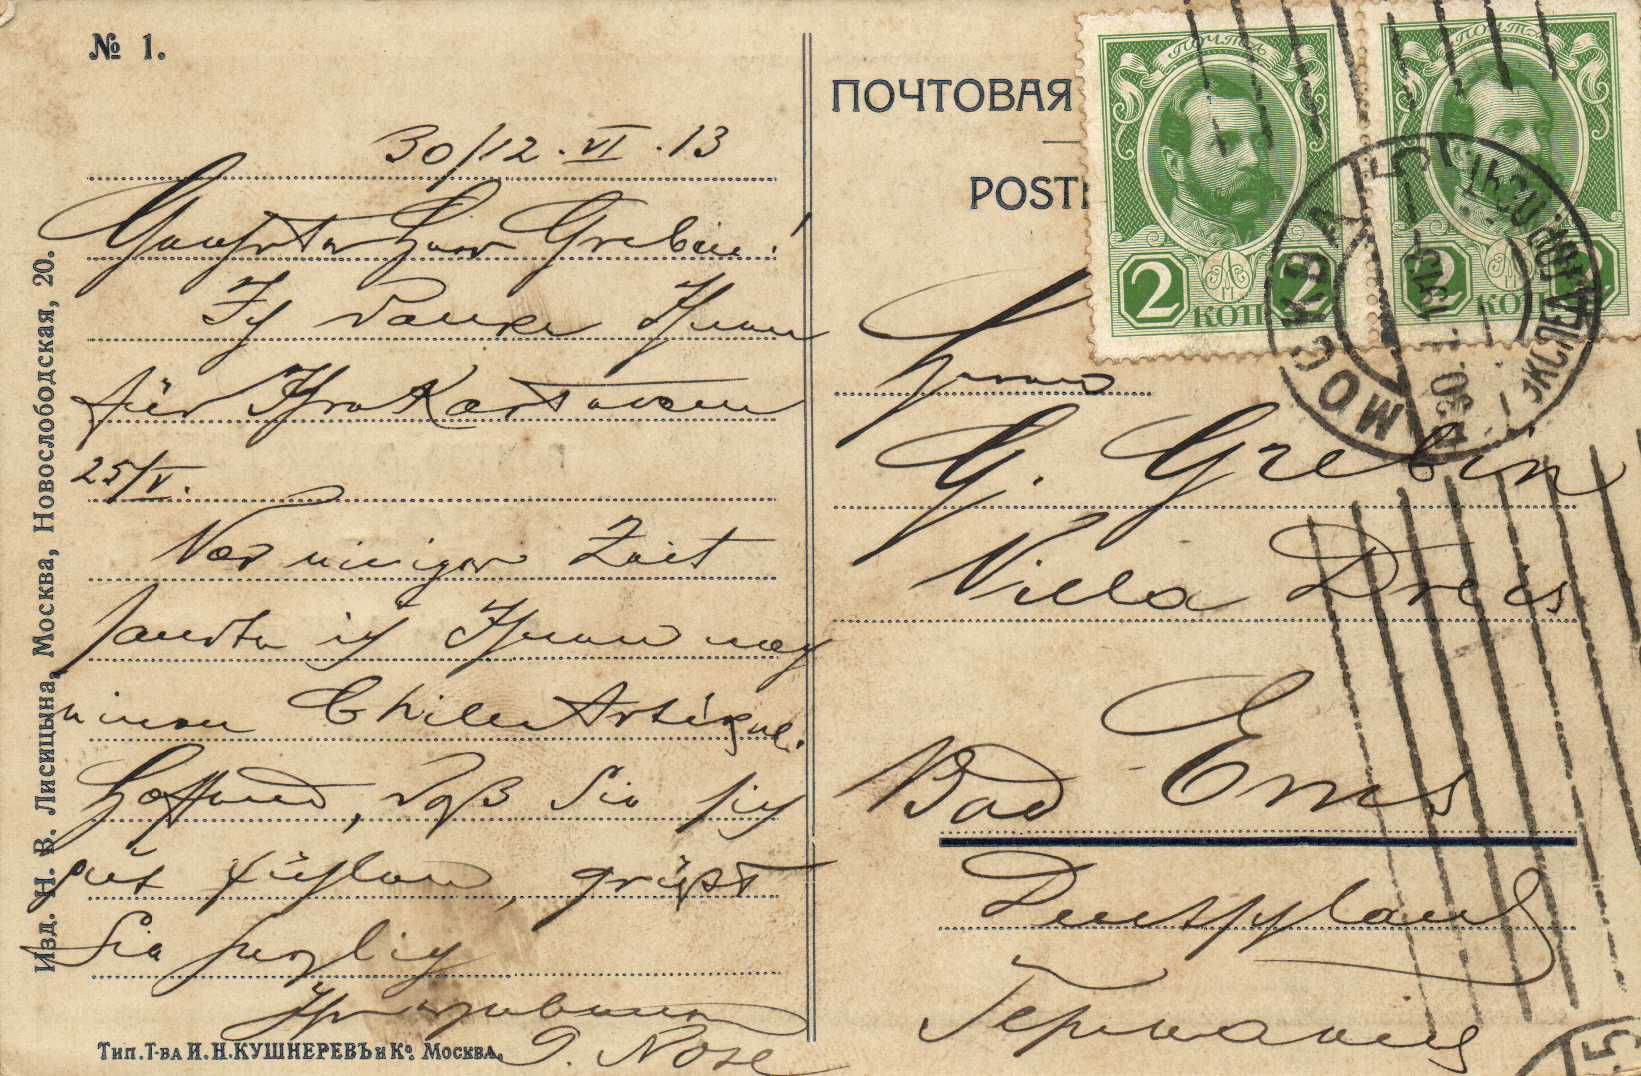 № 1.
30/12.VI.13
Geehrter Herr Grebin!
Ich danke Ihnen
für Ihre Karte vom
25/V.
Vor einiger Zeit
sandte ich Ihnen nach
einen Chile
Hoffend, daß Sie sich
gut fühlen, grüßt
Sie herzlich
Ihr
J. Nose
Изд. Н. В. Лисицына, Москва, Новослободская, 20.
Тип. Т-ва И. Н. КУШНЕРЕВЪ и Ко. Москва.
ПОЧТОВАЯ
POST
ПОЧТА
2 2
КОП
ПОЧТА
2 2
КОП
МОСКВА
Herrn
G. Grebin
Villa Dreis
Bad Ems
Deutschland
Германия